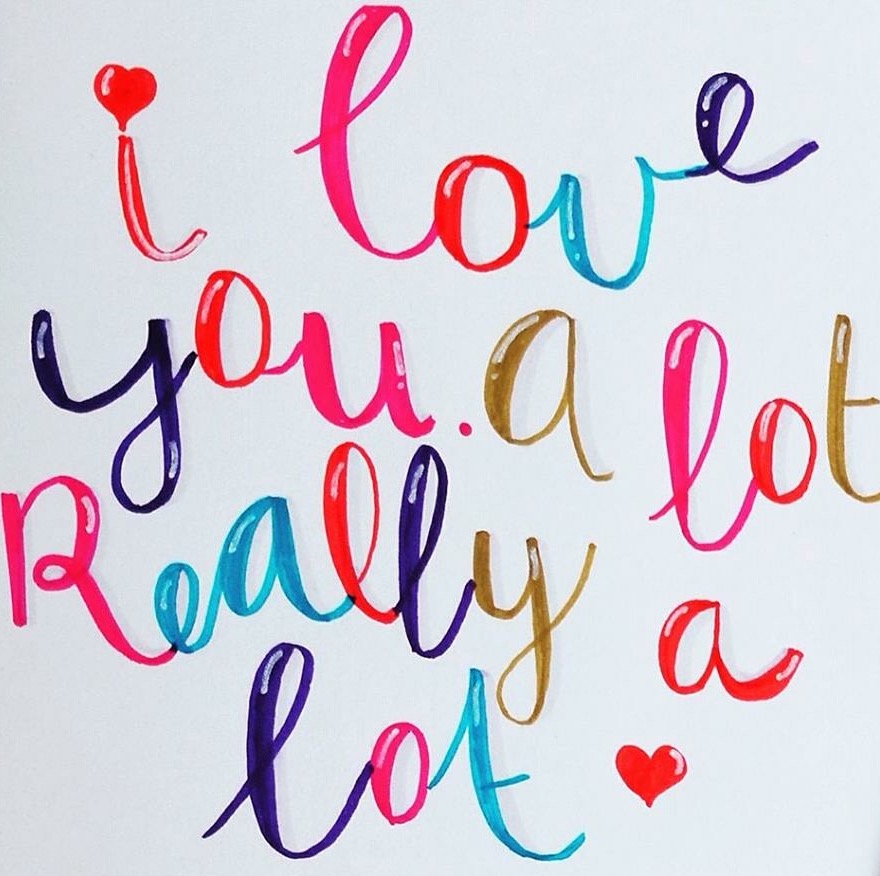 i love
you. a lot
Really a
lot